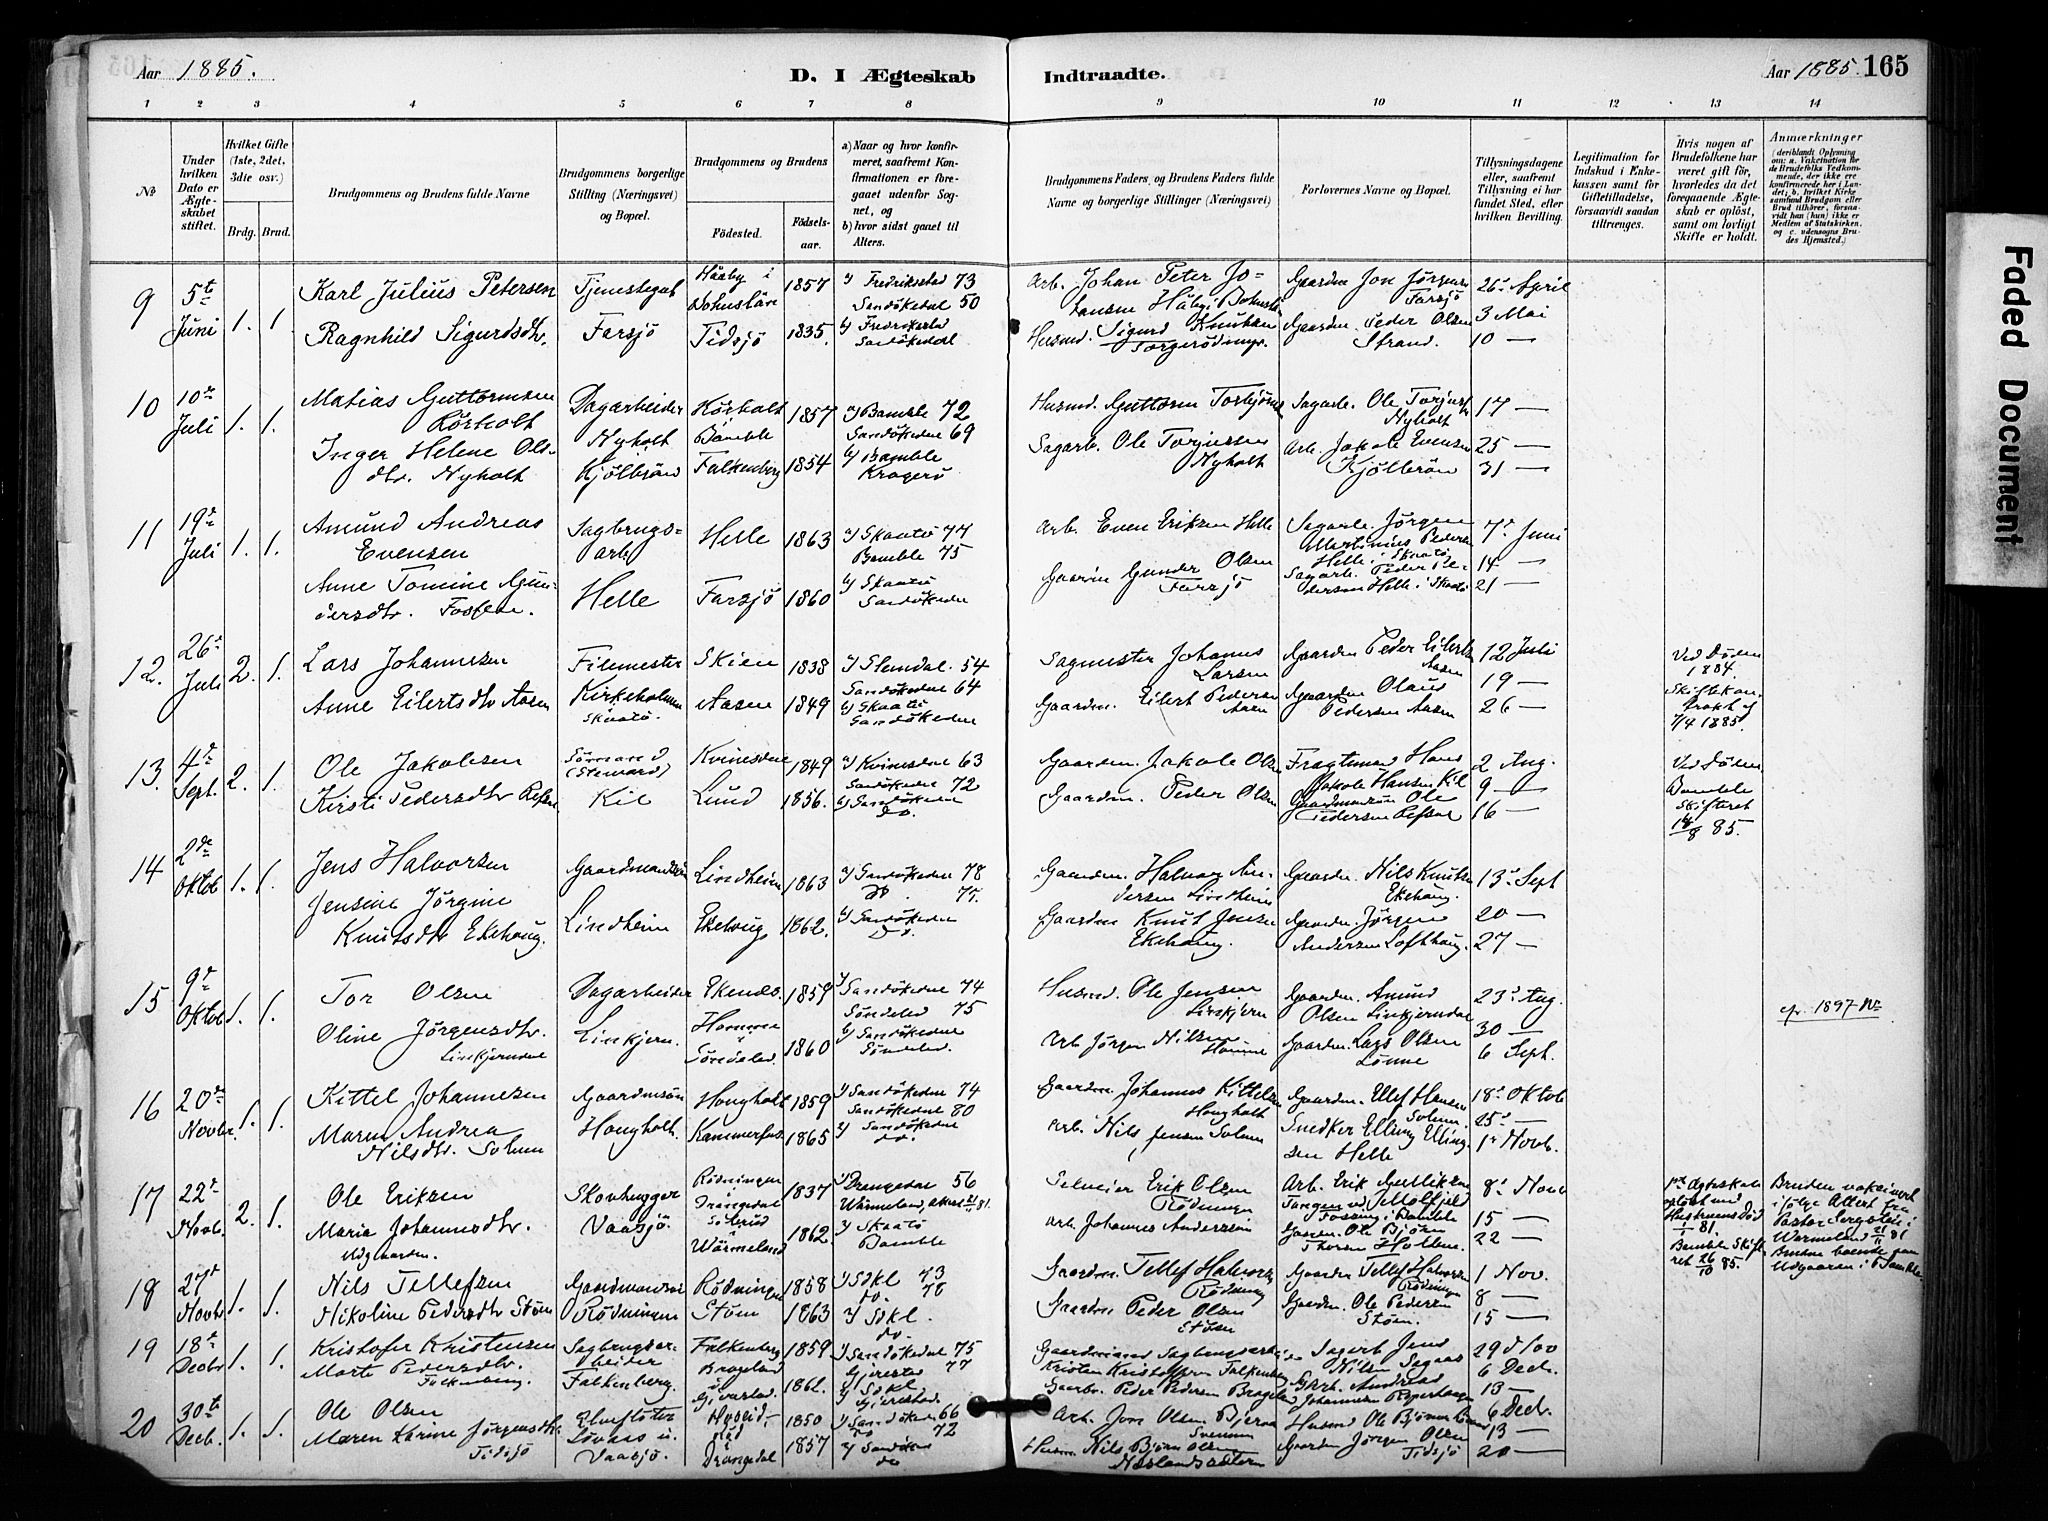 Aar 1885.
D. I Ægteskab
Indtraadte.
Aar 1885. 165
1 2 3 4 5 6 7 8
9 10 11 12 13 14
No
Under hvilken Dato er Ægteskabet stiftet.
Hvilket Gifte (1ste, 2det, 3die osv.)
Brdg. Brud.
Brudgommens og Brudens fulde Navne
Brudgommens borgerlige Stilling (Næringsvei) og Bopæl.
Brudgommens og Brudens
Fødested.
Fødselsaar.
a) Naar og hvor konfirmeret, saafremt Konfirmationen er foregaaet udenfor Sognet, og
b) hvor sidst gaaet til Alters.
Brudgommens Faders, og Brudens Faders fulde Navne og borgerlige Stillinger (Næringsvei)
Forlovernes Navne og Bopæl.
Tillysningsdagene eller, saafremt Tillysning ei har fundet Sted, efter hvilken Bevilling.
Legitimation for Indskud i Enkekassen samt for Giftetilladelse, forsaavidt saadan tiltrænges.
Hvis nogen af Brudefolkene har været gift før, hvorledes da det foregaaende Ægteskab er opløst, samt om lovligt Skifte er holdt.
Anmærkninger (deriblandt Oplysning om: a. Vakcination for de Brudefolks Vedkommende, der ikke ere konfirmerede her i Landet; b. hvilket Kirkesamfund Brudgom eller Brud tilhører, forsaavidt han (hun) ikke er Medlem af Statskirken, og c. udensogns Brudes Hjemsted.)
9 5t Juni 1. 1 Karl Julius Petersen Tjenestegut Haaby i Bohuslän 1857 a) Fredriksstad 73 Sandökedne 50
Ragnhild Sigurdsdtr. Farsjö Tidsjö 1835. b) Fredriksstad Sandökedal
Arb. Johan Peter Johansen Håby i Bohuslän Gaardm. Jon Jörgensen Farsjö 26. April
Husmd. Sigurd Knutsen Gaardm. Peder Olsen Strand. 3 Mai
10 —
10 10de Juli 1. 1. Matias Guttormsen Rörholt Dagarbeider Rörholt 1857 a) Bamble 72 Sandökedne 69
Inger Helene Olsdtr. Nyholt Nyholt Kjölbrön Bamble Falkenberg 1854 b) Bamble Kragerö
Husmd. Guttorm Torbjörns Sagarb. Ole Torjusen Nyholt 17 —
Sagarb. Ole Torjussen Nyholt Arb. Jakob Evensen Kjölbrön 25 —
31 —
11 19de Juli 1. 1. Amund Andreas Evensen Sagbrugsarb. Helle 1863 a) Skaatö 77 Bamble 75
Anne Tomine Gundersdtr. Fossen. Helle Farsjö 1860 b) Skaatö Sandökedne
Arb. Even Eriksen Helle Sagarb. Jörgen Martinius Pedersen Helle i Skaatö 7. Juni
Gaardm. Gunder Olsen Farsjö Sagarb. Peder Pedersen Helle i Skaatö 14 —
21 —
12. 26de Juli 2. 1. Lars Johannesen Filemester Skien 1838 a) Slemdal. 54 Sandökedne 64
Anne Eilertsdtr Aasen Kirkeholmen Skaatö. Aasen 1849 b) Skaatö Sandökedne
Sagmester Johannes Larsen Gaardm. Peder Eilerts. Aasen 12 Juli
Gaardm. Eilert Pedersen Aasen Gaardm Olaus Pedersen Aasen 19 —
26 —
Ved Döden 1884. Skiftekontrakt af 7/4 1885.
13. 4de Sept. 2. 1. Ole Jakobsen Sömand (Steward) Kvinesdal 1849 a) Kvinesdal 63 Sandökedne 72
Kirsti Pedersdtr Refsal Kil Lund 1856. b) Sandökedne do.
Gaardm. Jakob Olsen Fragtemand Hans Jakob Hansen Kil 2 Aug.
Gaardm. Peder Olsen Gaardmandssön Ole Pedersen Refsal 9 —
16 —
Ved Döden Bamble Skifteret 14/8 85.
14 2den Oktob 1. 1. Jens Halvorsen Gaardmandssön Lindheim 1863 a) Sandökedne 78 do. 77.
Jensine Jörgine Knutsdtr Ekehaug. Lindheim Ekehaug 1862. b) Sandökedne do.
Gaardm. Halvor Andersen Lindheim Gaardm. Nils Knutsen Ekehaug. 13. Sept
Gaardm Knut Jensen Ekehaug. Gaardm. Jörgen Andersen Lofthaug. 20 —
27 —
15 9de Oktob 1. 1. Tor Olsen Dagarbeider 1859 a) Sandökedne 74 Söndeled 75
Oline Jörgensdtr. Linkjerndal Linkjern. Homme i Söndeled 1860 b) Sandökedne Söndeled.
Husmd. Ole Jensen Linkjern Gaardm. Amund Olsen Linkjerndal 23. Aug.
Arb. Jörgen Nilsen Homme Gaardm. Lars Olsen Lönne 30 —
6 Sept.
cfr. 1897 No
16 20de Novbr. 1. 1. Kittel Johannesen Gaardmssön Hougholt 1859 a) Sandökedne 74 Sandökedne 80
Maren Andrea Nilsdtr. Solum Hougholt. Kammerfos 1865 b) Sandökedne do.
Gaardm. Johannes Kittelsen Hougholt Gaardm. Ellef Hansen Solum. 18. Oktob
Arb. Nils Jensen Solum Snedker Elling Ellingsen Helle 25. —
1. Novb.
17 22de Novb. 2. 1. Ole Eriksen Skovhugger Rödningen i Drangedal 1837 a) Drangedal 56 Wärmeland, 81.
Maria Johannesdtr. Udgaarden. Vaasjö. Wärmeland 1862 b) Skaatö Bamble
Selveier Erik Olsen Rödningen Arb. Erik Gulliksen Fossing i Bamble 8. Nov
Arb. Johannes Anderssön Gaardm. Ole Björn Thorsen Holten. 15 —
22 —
1ste Ægteskab oplöst ved Hustruens Död 81. Bamble Skifteret 26/10 85.
Bruden vaksineret ifölge Attest fra Pastor i Wermeland 21/11 81 Bruden boende paa Udgaarden i Bamble
18 27de Novbr 1. 1. Nils Tellefsen Gaardmandssön Rödningen 1858 a) Sdkl 73 do. 78
Nikoline Pedersdtr Stöen Rödningen Stöen 1863 b) Sdkl. do.
Gaardm. Tellef Halvors. Rödning Gaardm Tellef Halvorsen Rödningen 1 Nov.
Gaardm Peder Olsen Stöen Gaardm. Ole Pedersen Stöen. 8 —
15 —
19 18de Decbr 1. 1. Kristofer Kristensen Sagbrugsarbeider Falkenberg 1859 a) Sandökedne 75 Gjerestad 77
Marte Pedersdtr. Falkenberg. Falkenberg. Brageland i Gjerestad 1862. b) Sdkl. Gjerestad
Gaardmand Sagbrugsarb. Kristen Kristoffersen Falkenberg Sagarb. Jens Nilsen Sagaas 29 Nov
Gaardm. Peder Pedersen Brageland Andreas Johannesen 6 Decbr.
13 —
20 30te Decb. 1. 1. Ole Olsen Elveflöter 1850 a) Sandökedne 66 do 72
Maren Karine Jörgensdtr. Tidsjö Lövaas u. Vaasjö. Drangedal 1857 b) Sandökedne do
Arb. Jon Olsen Husmd Ole Björnsen 6 Decbr.
Husm. Nils Björn Olsen Gaardm Jörgen Olsen Tidsjö 13 —
20 —
Faded Document